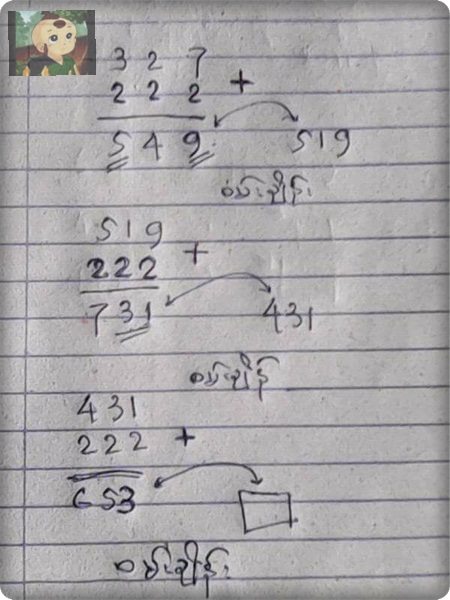 3 2 7
2 2 2 +
5 4 9 519
စမ်းချိန်း
519
222 +
731 431
စမ်းချိန်
431
222 +
653
စမ်းချိန်း